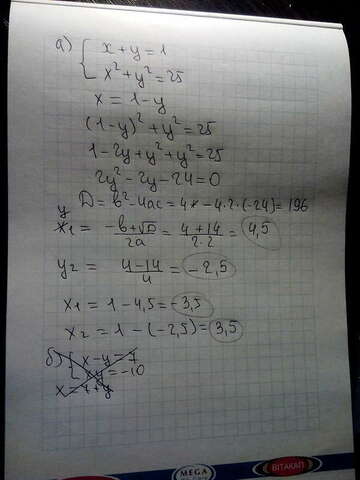 а) { x + y = 1
x² + y² = 25
x = 1 - y
(1-y)² + y² = 25
1 - 2y + y² + y² = 25
2y² - 2y - 24 = 0
D = b² - 4ac = 4* - 4·2·(-24) = 196
y
x₁ = -b+√D / 2a = 4+14 / 2·2 = 4,5
y₂ = 4-14 / 4 = -2,5
x₁ = 1 - 4,5 = -3,5
x₂ = 1 - (-2,5) = 3,5
б) { x - y = 7
xy = -10
x = 7 + y
MEGA
ВІТАКАП